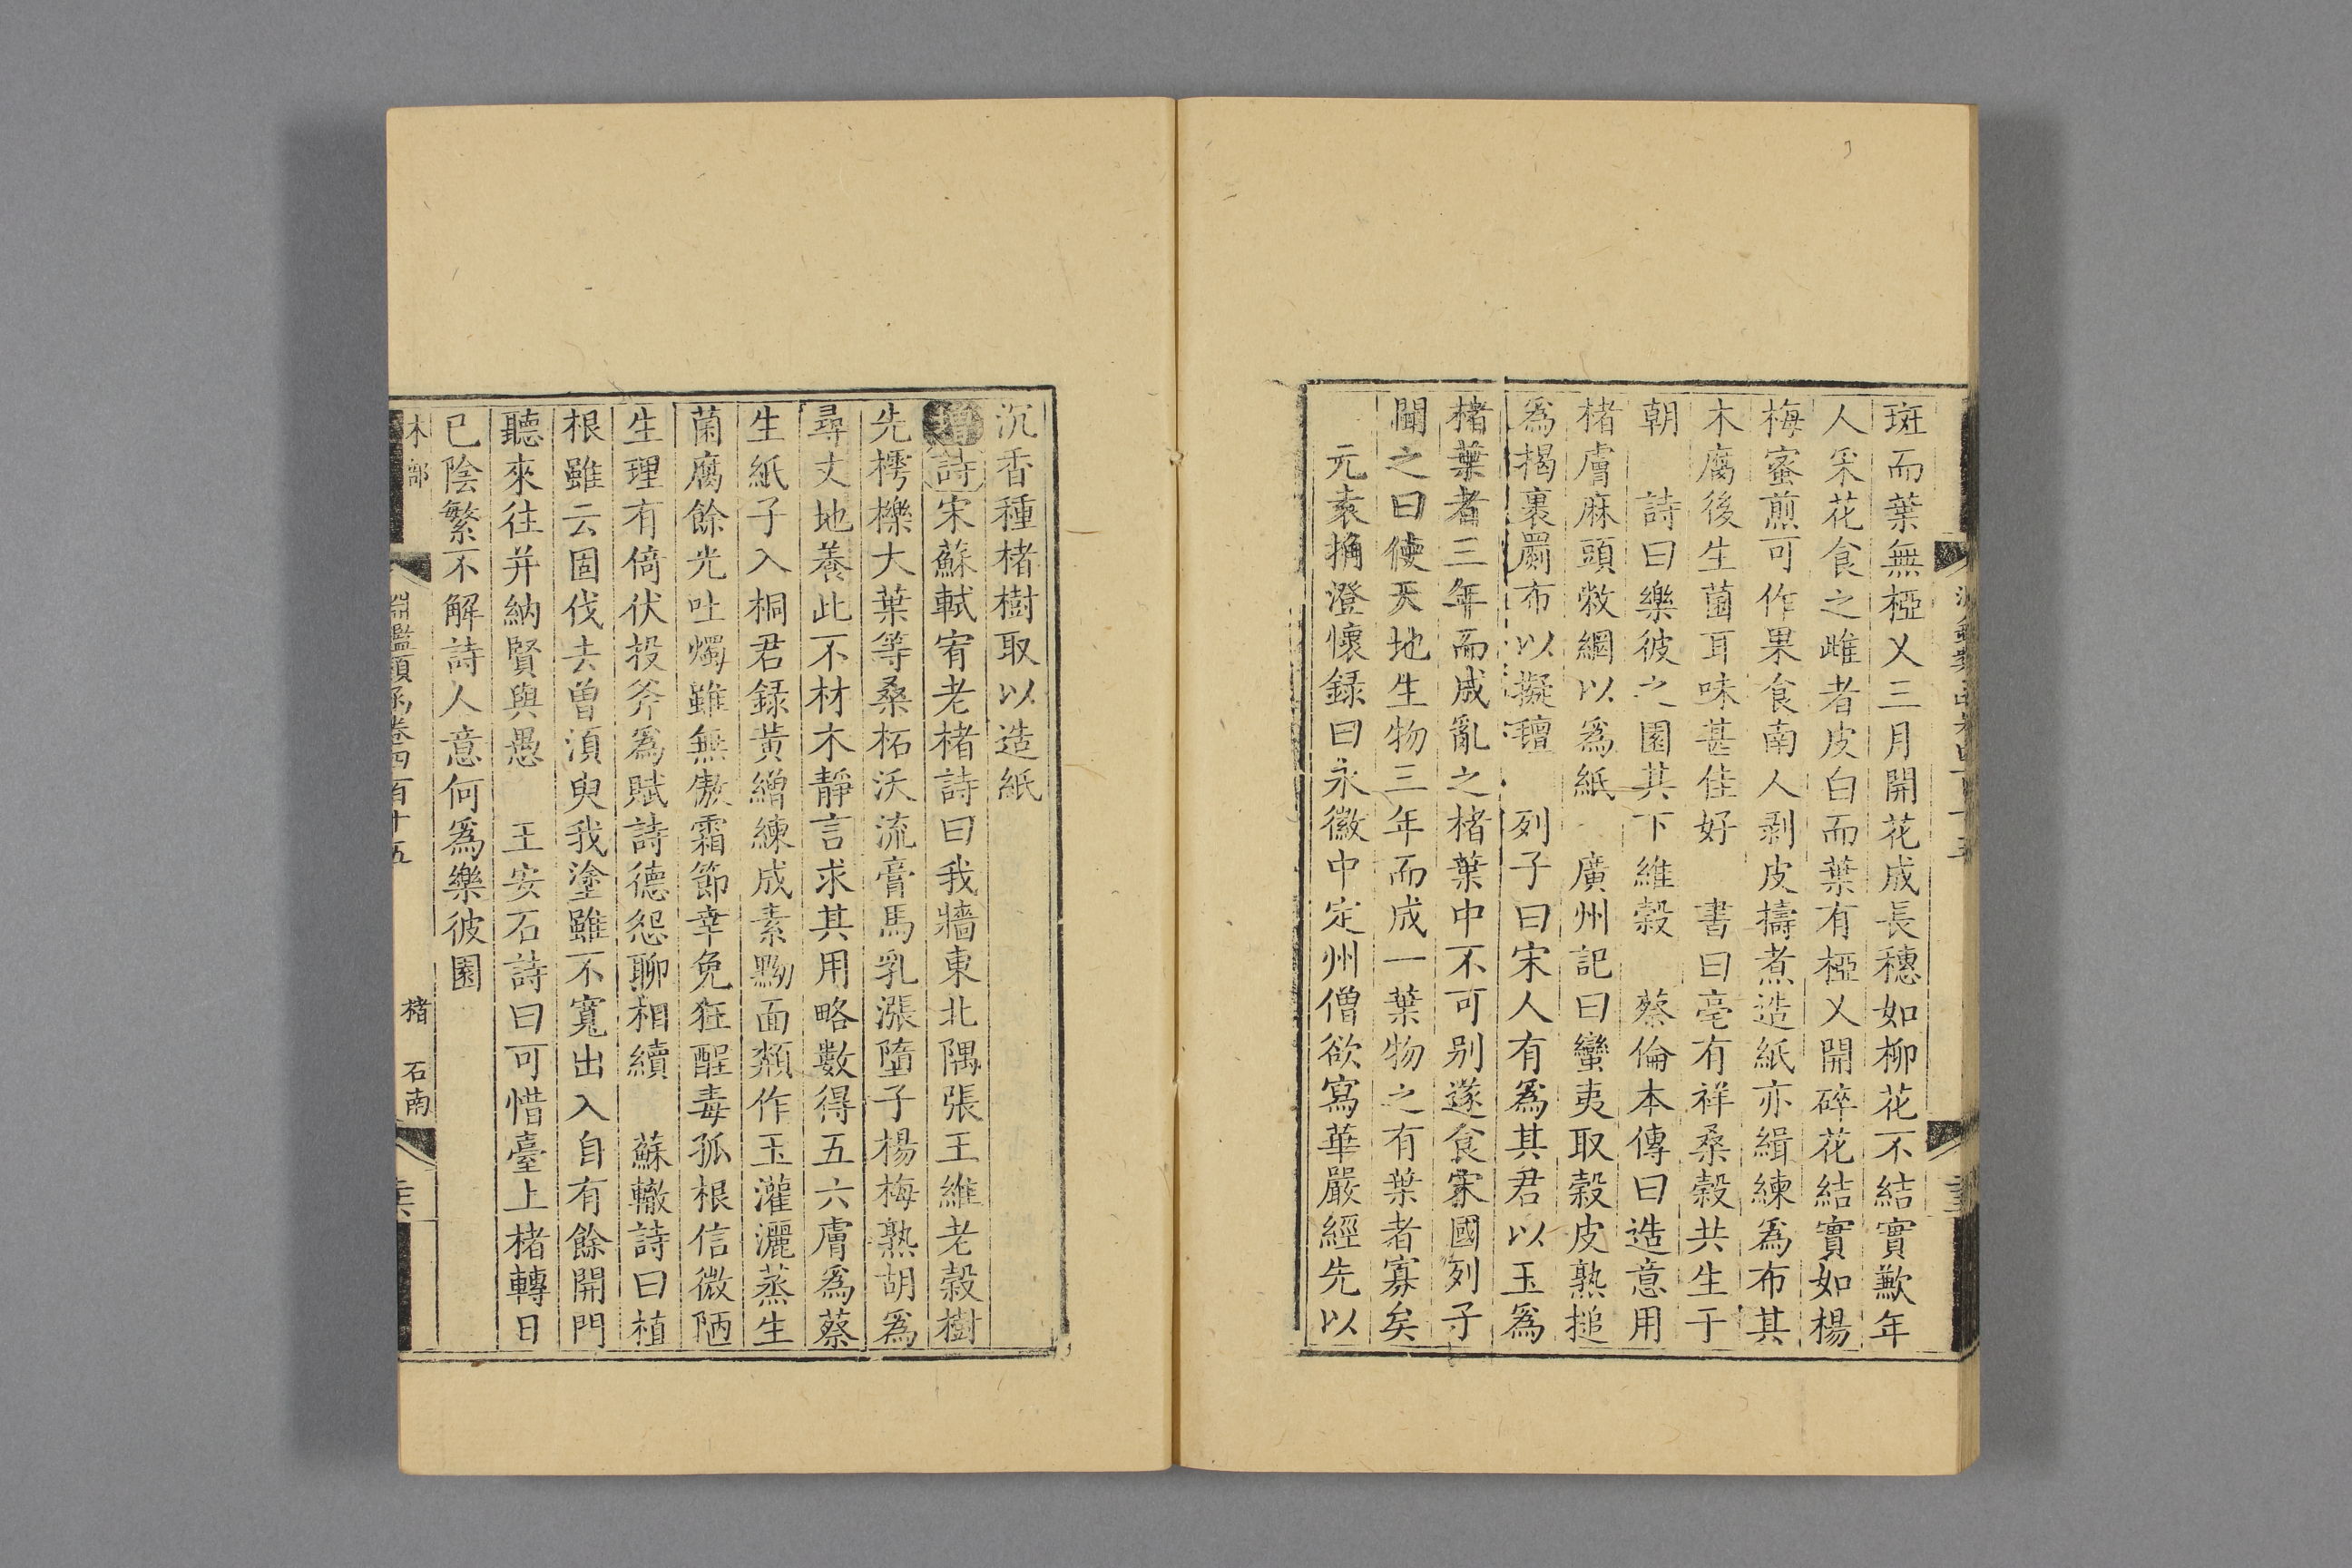 斑而葉無椏乂三月開花成長穗如柳花不結實歉年
人采花食之雌者皮白而葉有椏乂開碎花結實如楊
梅蜜煎可作果食南人剥皮擣煮造紙亦緝練爲布其
木腐後生菌耳味甚佳好　書曰亳有祥桑榖共生于
朝　詩曰樂彼之園其下維榖　蔡倫本傳曰造意用
楮膚麻頭敝網以爲紙　廣州記曰蠻夷取榖皮熟搥
爲揭裹罽布以擬氊　列子曰宋人有爲其君以玉爲
楮葉者三年而成亂之楮葉中不可别遂食宋國列子
聞之曰使天地生物三年而成一葉物之有葉者寡矣
元袁桷澄懷録曰永徽中定州僧欲寫華嚴經先以
沉香種楮樹取以造紙
增詩宋蘇軾宥老楮詩曰我牆東北隅張王維老榖樹
先樗櫟大葉等桑柘沃流膏馬乳漲墮子楊梅熟胡爲
尋丈地養此不材木靜言求其用略數得五六膚爲蔡
生紙子入桐君録黄繒練成素黝面頮作玉灌灑蒸生
菌腐餘光吐燭雖無傲霜節幸免狂酲毒孤根信微陋
生理有倚伏投斧爲賦詩德怨聊相續　蘇轍詩曰植
根雖云固伐去曾湏臾我塗雖不寬出入自有餘開門
聽來往并納賢與愚　王安石詩曰可惜臺上楮轉日
已陰繁不解詩人意何爲樂彼園
木部　淵鑑類函卷四百十五　楮　石南